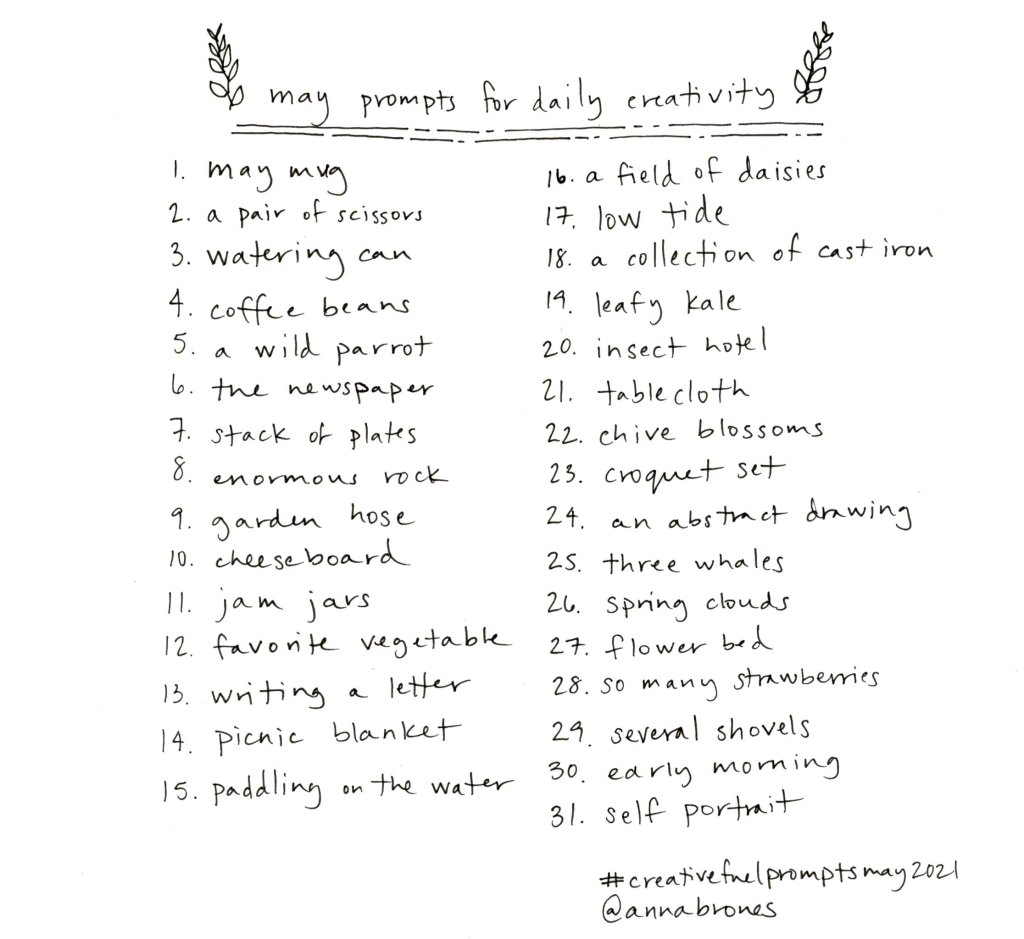 may prompts for daily creativity
1. may mug
2. a pair of scissors
3. watering can
4. coffee beans
5. a wild parrot
6. the newspaper
7. stack of plates
8. enormous rock
9. garden hose
10. cheeseboard
11. jam jars
12. favorite vegetable
13. writing a letter
14. picnic blanket
15. paddling on the water
16. a field of daisies
17. low tide
18. a collection of cast iron
19. leafy kale
20. insect hotel
21. tablecloth
22. chive blossoms
23. croquet set
24. an abstract drawing
25. three whales
26. spring clouds
27. flower bed
28. so many strawberries
29. several shovels
30. early morning
31. self portrait
#creativefuelpromptsmay2021
@annabrones